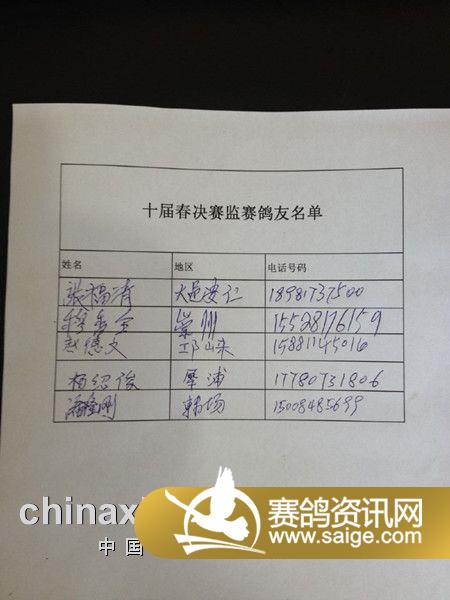 十届春决赛监赛鸽友名单
姓名 地区 电话号码
张福清 大邑 18981737500
崇州 15528176159
赵德文 邛崃 15881145016
杨绍俊 犀浦 17780731806
刚 韩场 15008485699
chinax
中国
赛鸽资讯网
www.saige.com